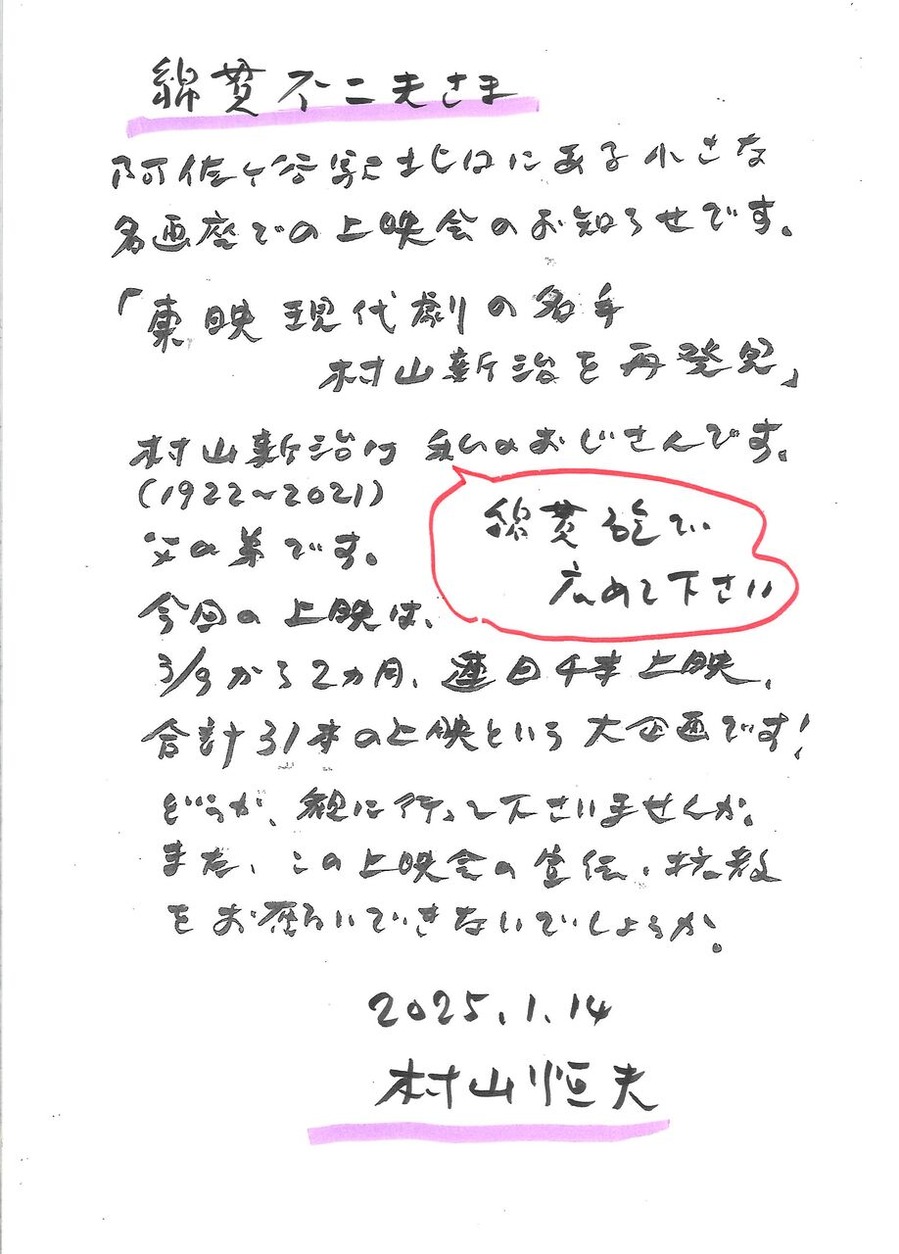 綿貫不二夫さま
阿佐ヶ谷駅北口にある小さな
名画座での上映会のお知らせです。
「東映現代劇の名手
村山新治を再発見」
村山新治は私のおじさんです。
(1922~2021)
父の弟です。
綿貫ルートで
広めて下さい
今回の上映は、
3/9から2カ月、連日4本上映、
合計31本の上映という大企画です!
どうか、観に行って下さいませんか。
また、この上映会の宣伝・拡散
をお願いできないでしょうか。
2025.1.14
村山恒夫